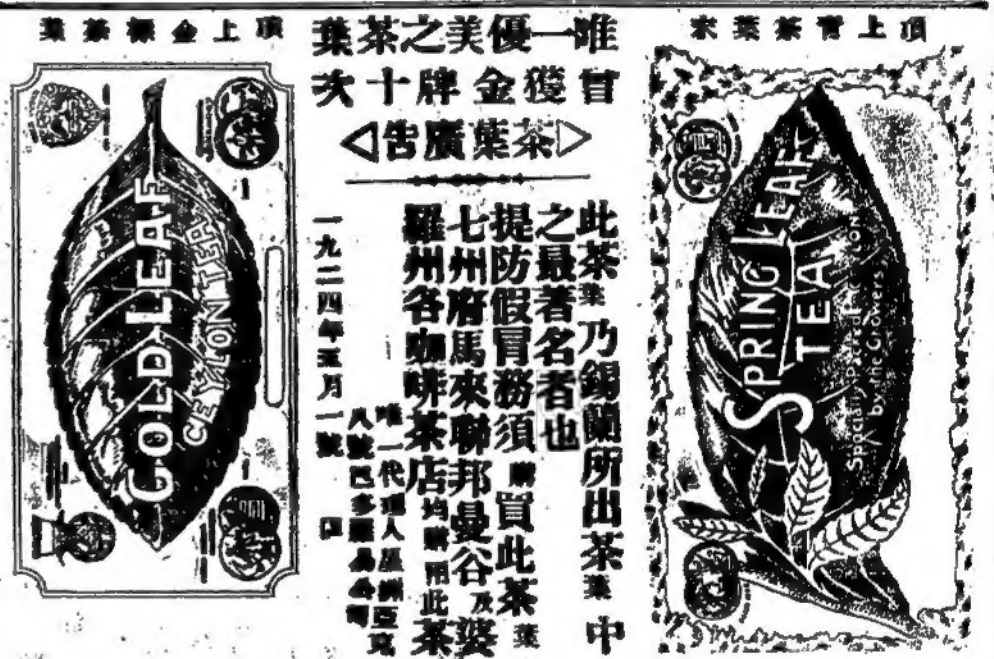 頂上青茶葉末
SPRING LEAF
TEA
Specially Packed
by the Growers
唯一優美之茶葉
曾獲金牌十次
▷茶葉廣告◁
此茶葉乃錫蘭所出茶葉中
之最著名者也
提防假冒務須購買此茶葉
七州府馬來聯邦曼谷及婆
羅州谷咖啡茶店均購用此茶
唯一代理人
一九二四年五月一號
頂上金標茶葉
GOLD LEAF
CEYLON TEA